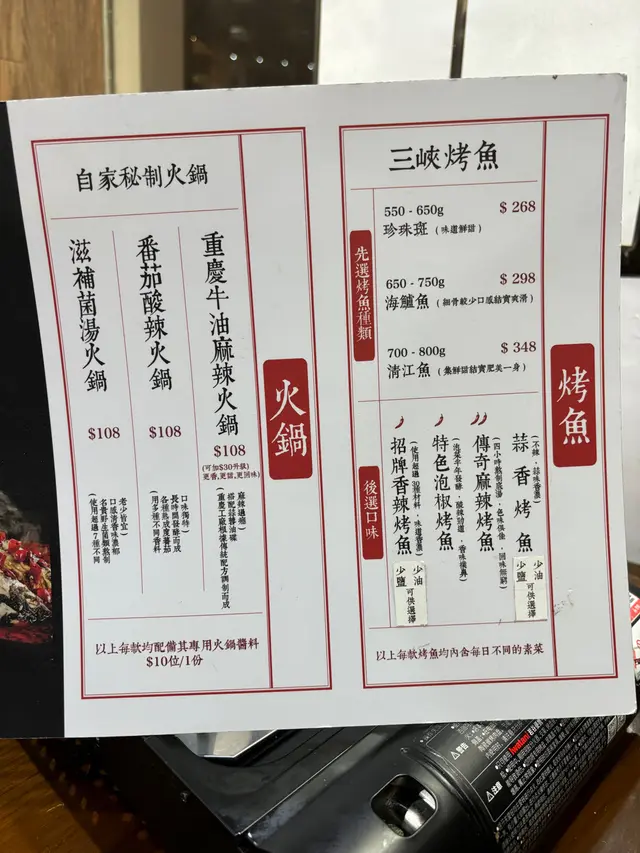 火鍋
自家秘制火鍋
重慶牛油麻辣火鍋
$108
(可加$30升級)
更香,更甜,更回味
麻辣過癮)
搭配蒜蓉油碟
(重慶工廠根據傳統配方調制而成
番茄酸辣火鍋
$108
口味獨特)
長時間發酵而成
各種熟成度蕃茄
(用多種不同香料
滋補菌湯火鍋
$108
老少皆宜)
口感清香味濃郁
名貴野生菌類熬制
(使用超過7種不同
以上每款均配備其專用火鍋醬料
$10位/1份
烤魚
三峽烤魚
先選烤魚種類
550 - 650g
$ 268
珍珠斑 (味道鮮甜)
650 - 750g
$ 298
海鱸魚 (細骨較少口感結實爽滑)
700 - 800g
$ 348
清江魚 (集鮮甜結實肥美一身)
後選口味
蒜香烤魚
(不辣,蒜味香濃)
少油
少鹽
可供選擇
傳奇麻辣烤魚
特色泡椒烤魚
招牌香辣烤魚
少油
少鹽
可供選擇
以上每款烤魚均內含每日不同的素菜
警告
注意